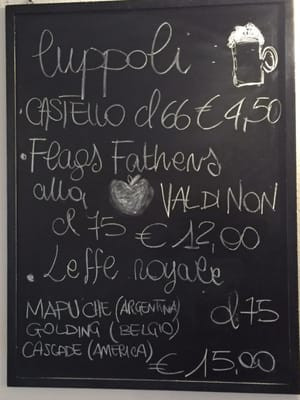 luppoli
• CASTELLO cl 66 € 4,50
• Flags Fathers
alla VAL DI NON
cl 75 € 12,00
• Leffe royale
MAPUCHE (ARGENTINA) cl 75
GOLDING (BELGIO)
CASCADE (AMERICA)
€ 15,00